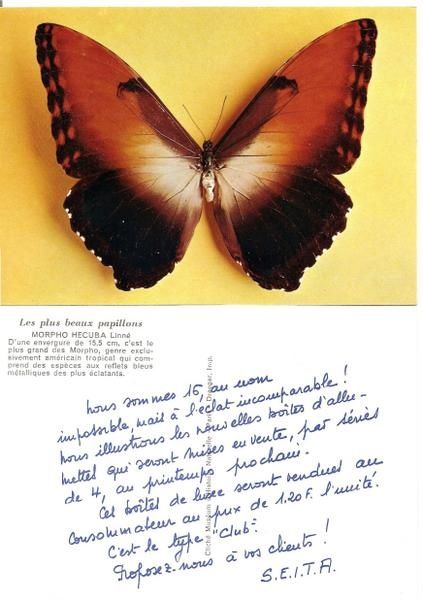 Les plus beaux papillons
MORPHO HECUBA Linné
D'une envergure de 15,5 cm, c'est le
plus grand des Morpho, genre exclu-
sivement américain tropical qui com-
prend des espèces aux reflets bleus
métalliques des plus éclatants.
nous sommes 16, au nom
impossible, mais à l'éclat incomparable !
nous illustrons les nouvelles boîtes d'allu-
mettes qui seront mises en vente, par séries
de 4, au printemps prochain.
Ces boîtes de luxe seront vendues au
Consommateur au prix de 1.20 F. l'unité.
C'est le type "Club".
Proposez-nous à vos clients !
S.E.I.T.A.
Cliché Muséum Histoire Naturelle Paris
Imp.